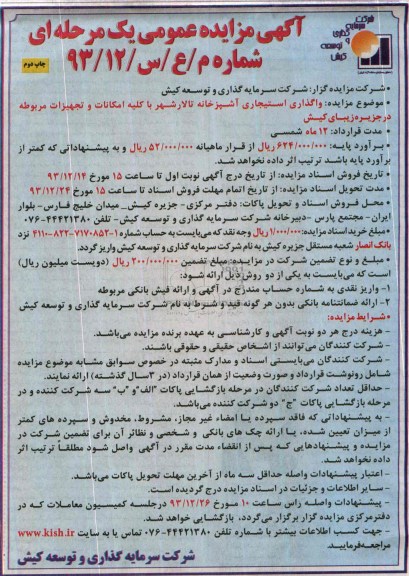 شرکت
سرمایه
گذاری
و
توسعه
کیش
آگهی مزایده عمومی یک مرحله ای
شماره م/ع/س/۹۳/۱۲
چاپ دوم
- شرکت مزایده گزار: شرکت سرمایه گذاری و توسعه کیش
- موضوع مزایده: واگذاری استیجاری آشپزخانه تالارشهر با کلیه امکانات و تجهیزات مربوطه
در جزیره زیبای کیش
- مدت قرارداد: ۱۲ ماه شمسی
- برآورد پایه: ۶۲۴/۰۰۰/۰۰۰ ریال از قرار ماهیانه ۵۲/۰۰۰/۰۰۰ ریال و به پیشنهاداتی که کمتر از
برآورد پایه باشد ترتیب اثر داده نخواهد شد.
- تاریخ فروش اسناد مزایده: از تاریخ درج آگهی نوبت اول تا ساعت ۱۵ مورخ ۹۳/۱۲/۱۴
- مدت تحویل اسناد مزایده: از تاریخ اتمام مهلت فروش اسناد تا ساعت ۱۵ مورخ ۹۳/۱۲/۲۴
- محل فروش اسناد و تحویل پاکات: دفتر مرکزی- جزیره کیش_ میدان خلیج فارس- بلوار
ایران- مجتمع پارس -دبیرخانه شرکت سرمایه گذاری و توسعه کیش- تلفن ۴۴۴۲۱۳۸۰-۰۷۶
- مبلغ خرید اسناد مزایده: ۱/۰۰۰/۰۰۰ ریال وجه نقد که می بایست به حساب شماره ۱-۷۱۷۰۸۵۲-۸۲۲-۴۱۱۰ نزد
بانک انصار شعبه مستقل جزیره کیش به نام شرکت سرمایه گذاری و توسعه کیش واریز گردد.
- مبلغ و نوع تضمین شرکت در مزایده: مبلغ تضمین ۲۰۰/۰۰۰/۰۰۰ ریال (دویست میلیون ریال)
است که می بایست به یکی از دو روش ذیل ارائه شود:
۱- واریز نقدی به شماره حساب مندرج در آگهی و ارائه فیش بانکی مربوطه
۲- ارائه ضمانتنامه بانکی بدون هر گونه قید و شرط به نام شرکت سرمایه گذاری و توسعه کیش
- شرایط مزایده:
- هزینه درج هر دو نوبت آگهی و کارشناسی به عهده برنده مزایده می باشد.
- شرکت کنندگان می توانند از اشخاص حقیقی و حقوقی باشند.
- شرکت کنندگان می بایستی اسناد و مدارک مثبته در خصوص سوابق مشابه موضوع مزایده
شامل رونوشت قرارداد و صورت وضعیت از همان قرارداد (در ۳سال گذشته) ارائه نمایند.
- حداقل تعداد شرکت کنندگان در مرحله بازگشایی پاکات "الف"و "ب" سه شرکت کننده و در
مرحله بازگشایی پاکات "ج" دو شرکت کننده می باشد.
- به پیشنهاداتی که فاقد سپرده یا امضاء غیر مجاز، مشروط، مخدوش و سپرده های کمتر
از میزان تعیین شده، یا ارائه چک های بانکی و شخصی و نظائر آن برای تضمین شرکت در
مزایده و پیشنهادهایی که پس از انقضاء مدت مقرر در آگهی واصل شود مطلقاً ترتیب اثر
داده نخواهد شد.
- اعتبار پیشنهادات واصله حداقل سه ماه از آخرین مهلت تحویل پاکات می باشد.
- سایر اطلاعات و جزئیات در اسناد مزایده درج گردیده است.
- پیشنهادات واصله راس ساعت ۱۰ مورخ ۹۳/۱۲/۲۶ در جلسه کمیسیون معاملات که در
دفتر مرکزی مزایده گزار برگزار می گردد، بازگشایی خواهد شد.
- جهت کسب اطلاعات بیشتر با شماره تلفن ۴۴۴۲۱۳۸۰-۰۷۶ تماس یا به سایت www.kish.ir
مراجعه فرمایید.
شرکت سرمایه گذاری و توسعه کیش